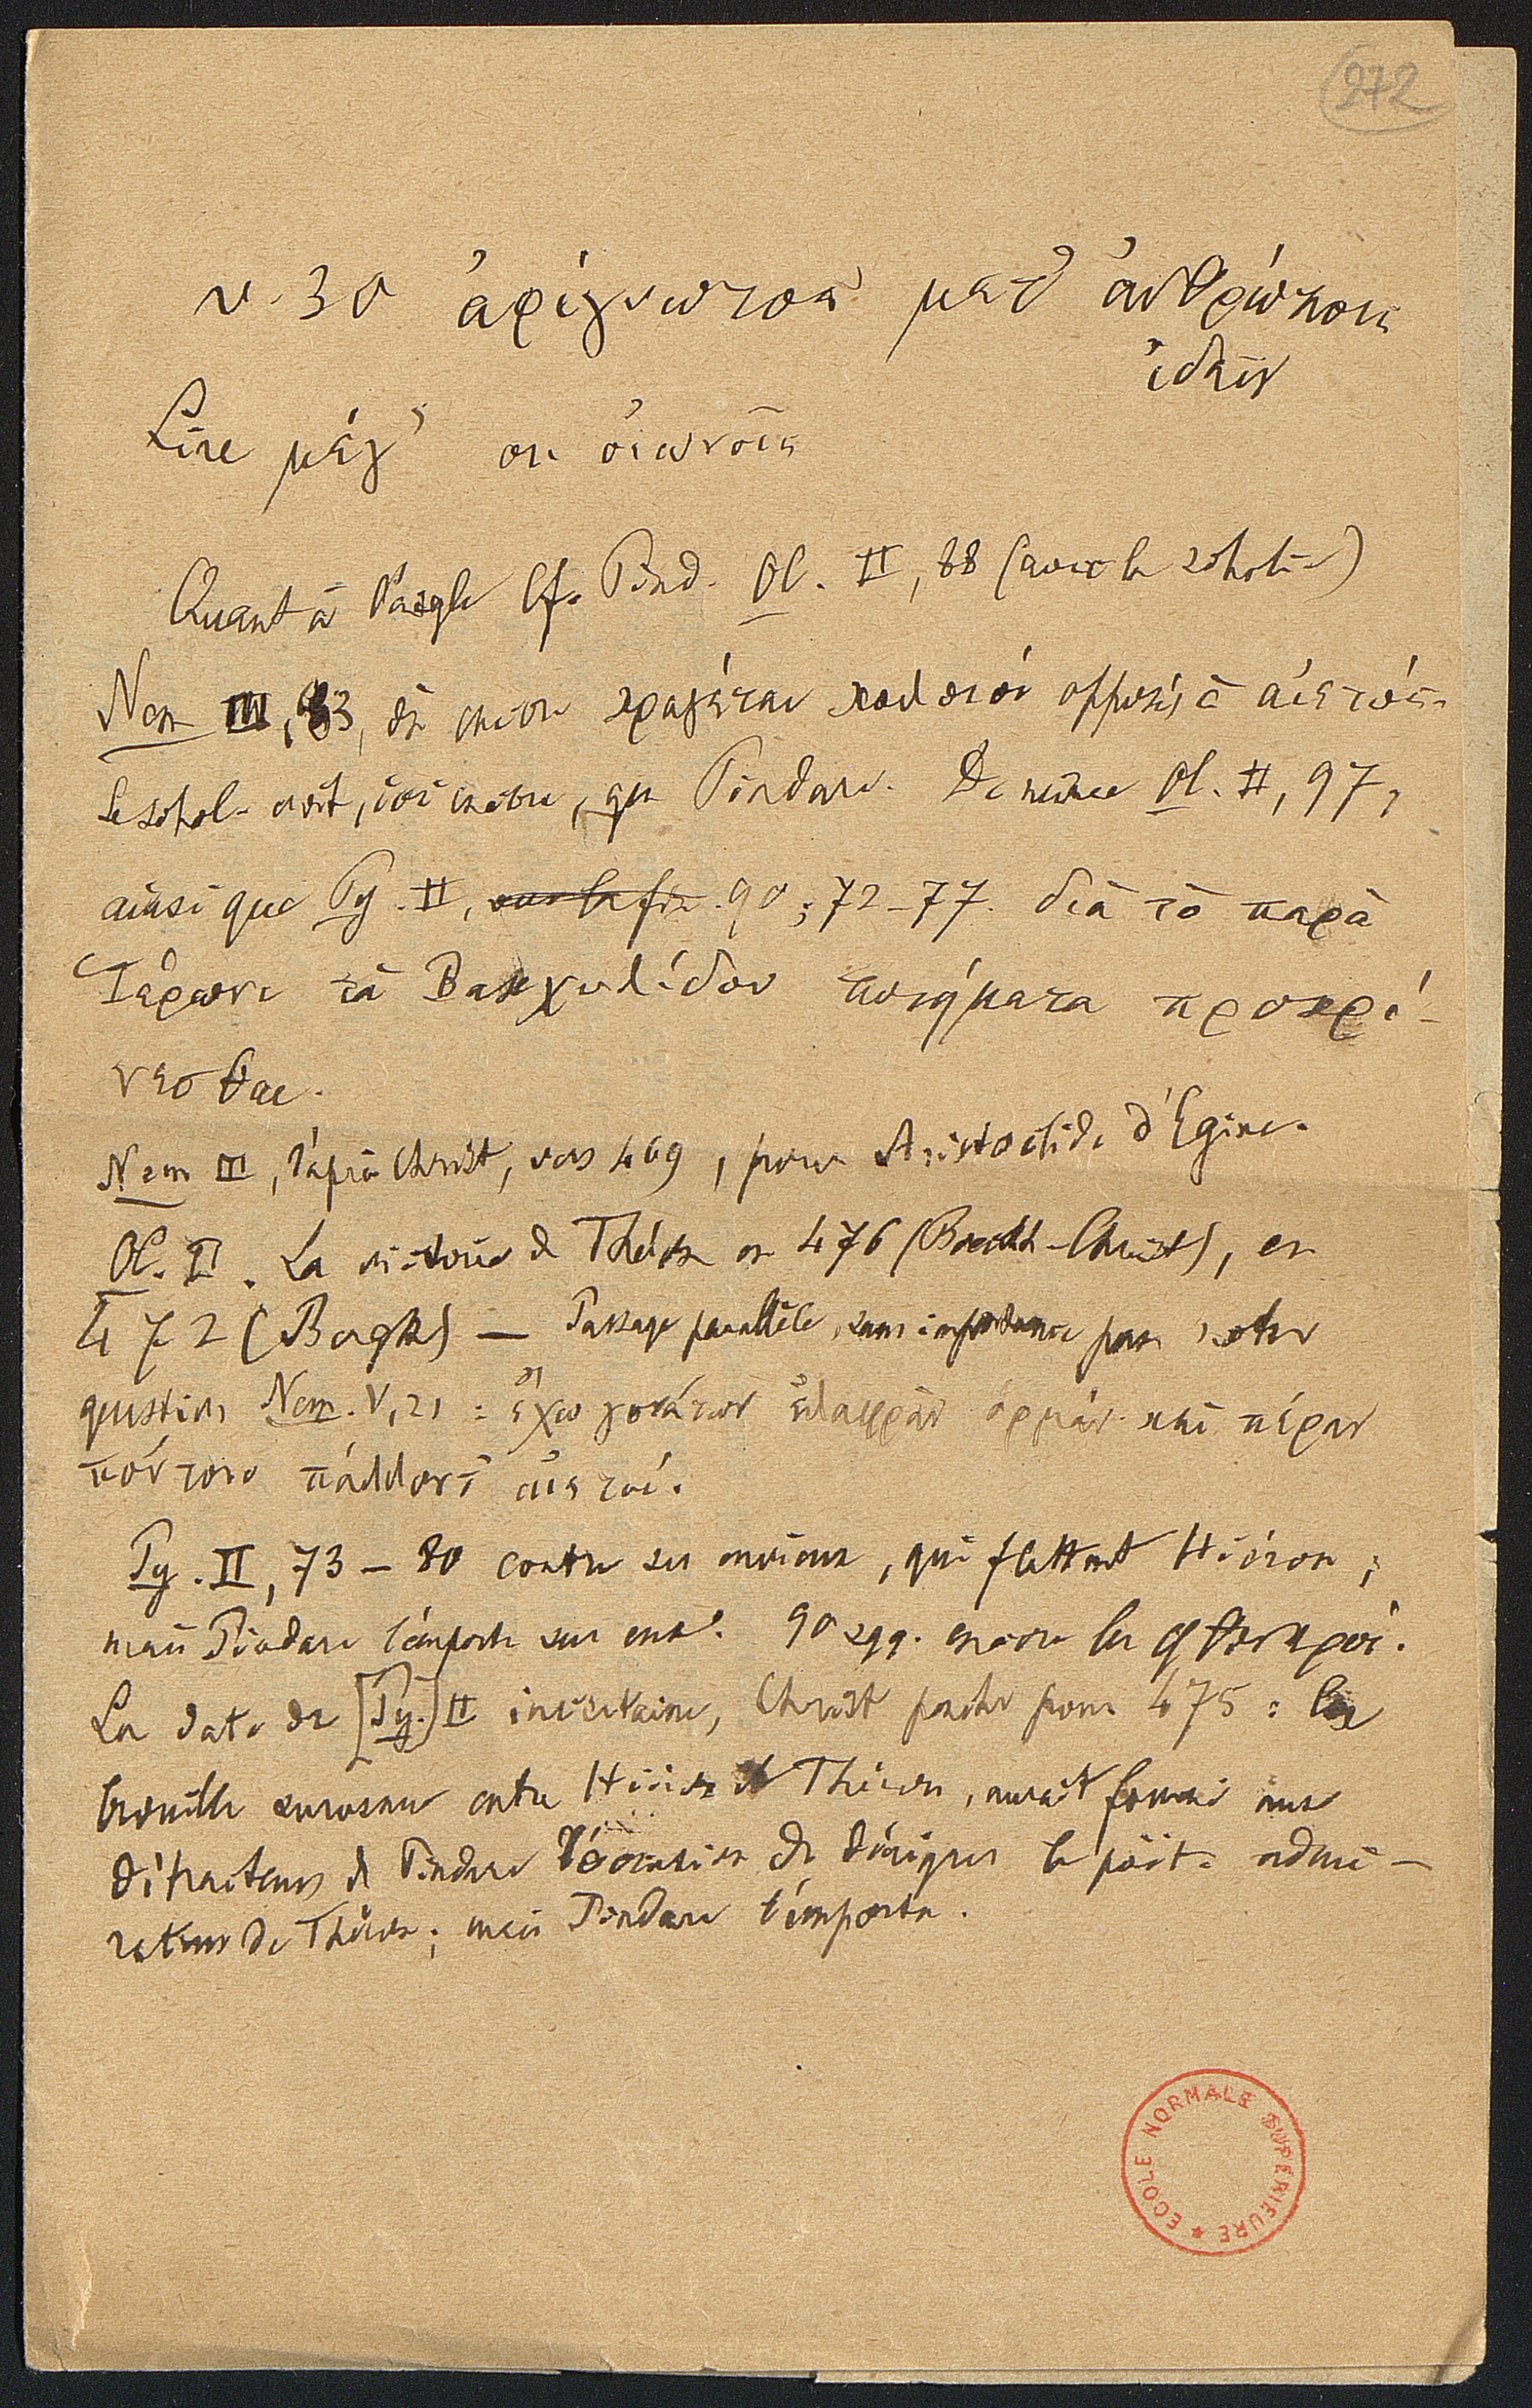 272
v. 30 ἀρίγνωτος μετ' ἀνθρώποις
ἰδεῖν
Lire μέγ' ou οἰωνοῖς
Quant à l'aigle Cf. Pind. Ol. II, 88 (avec la scholie)
Nem III, 83, où encore κραγέται κολοιοί opposés à αἰετός.
Le schol. croit, ici encore, que Pindare. De même Ol. II, 97,
ainsi que Py. II, vers la fin. 90 ; 72-77. διὰ τὸ παρὰ
Ἱέρωνι τὰ Βακχυλίδου ποιήματα προκρί-
νεσθαι.
Nem III, d'après Christ, vers 469, pour Aristoclide d'Egine.
Ol. II. La victoire de Théron en 476 (Boeckh-Christ), en
472 (Bergk) — Passage parallèle, sans importance pour notre
question Nem. V, 21 : ἔχω γονάτων ἐλαφρὰν ὁρμάν· καὶ πέραν
πόντοιο πάλλοντ' αἰετοί.
Py. II, 73-80 contre ses envieux, qui flattent Hiéron ;
mais Pindare l'emporte sur eux. 90 sqq. encore les φθονεροί.
La date de [Py.] II incertaine, Christ penche pour 475 : la
brouille survenue entre Hiéron et Théron, aurait fourni aux
détracteurs de Pindare l'occasion de dénigrer le poète admi-
rateur de Théron ; mais Pindare l'emporta.
ECOLE NORMALE SUPERIEURE